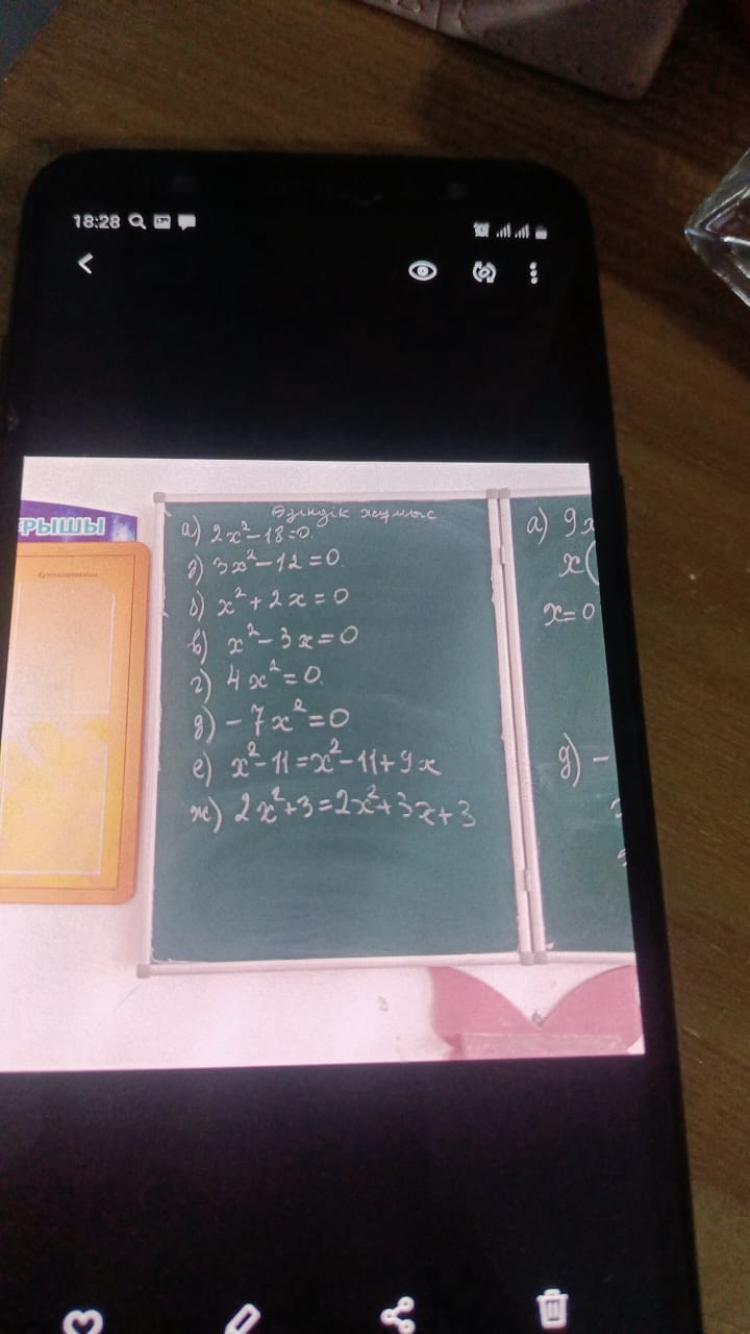 18:28
РЫШЫ
Өзіндік жұмыс
а) 2x²-18=0.
ә) 3x²-12=0.
б) x²+2x=0
в) x²-3x=0
г) 4x²=0.
д) -7x²=0
е) x²-11=x²-11+9x
ж) 2x²+3=2x²+3x+3
а) 9x
x(
x=0
д) -